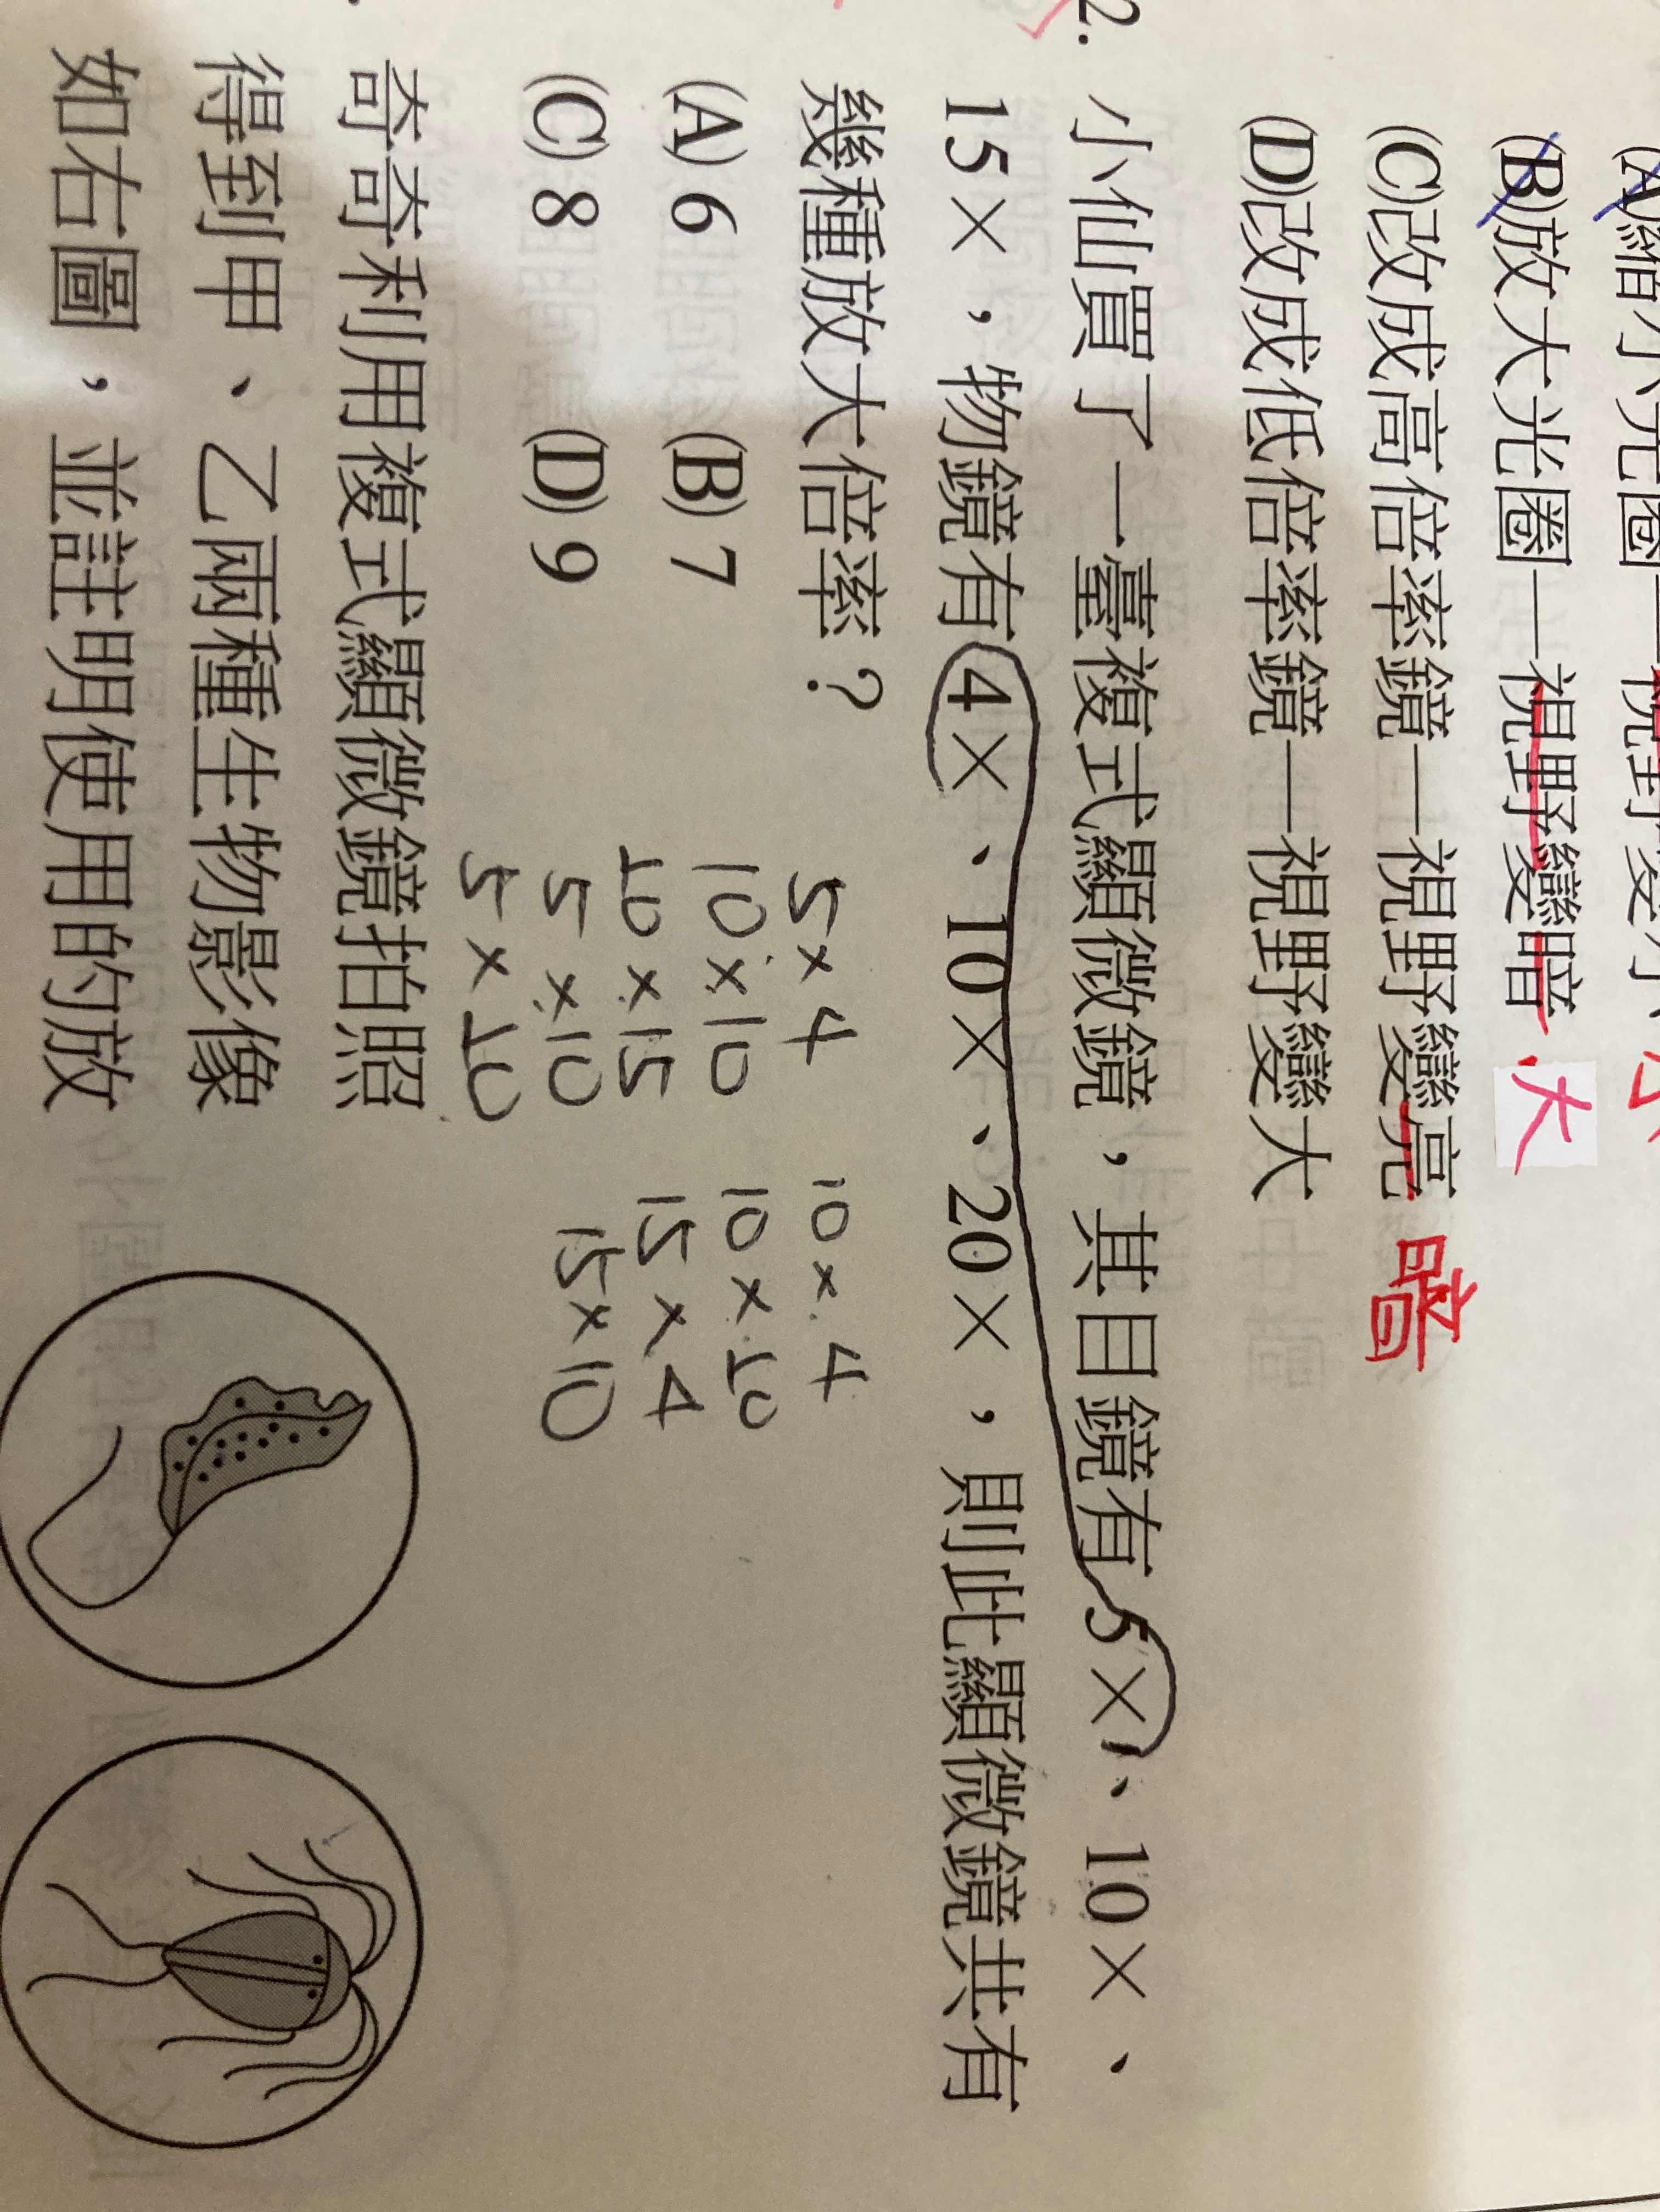 (A)縮小光圈—視野變
(B)放大光圈—視野變暗 大
(C)改成高倍率鏡—視野變亮 暗
(D)改成低倍率鏡—視野變大
2. 小仙買了一臺複式顯微鏡，其目鏡有5×、10×、
15×，物鏡有4×、10×、20×，則此顯微鏡共有
幾種放大倍率？
(A) 6 (B) 7
(C) 8 (D) 9
5×4 10×4
10×10 10×20
20×15 15×4
5×10 15×10
5×20
奇奇利用複式顯微鏡拍照
得到甲、乙兩種生物影像
如右圖，並註明使用的放